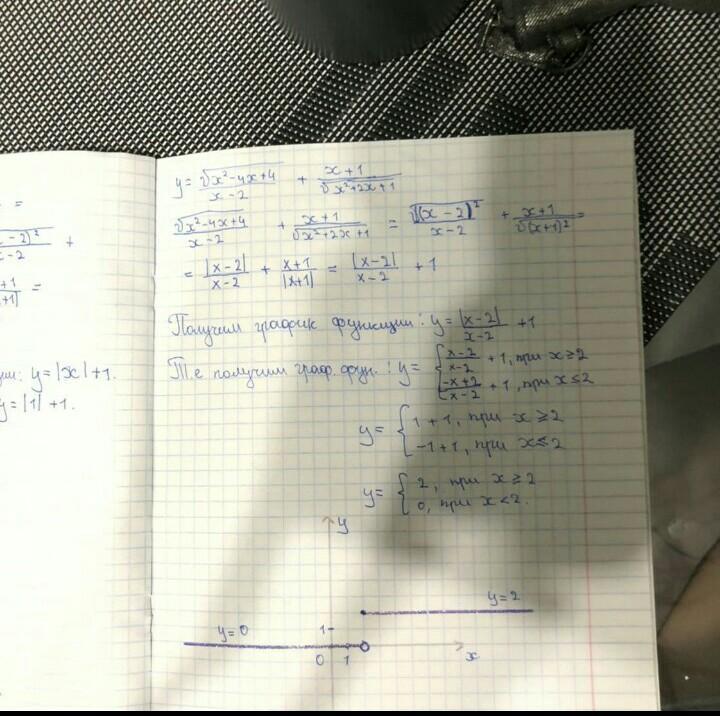 =
x-2)²
x-2
+
+1
x+1|
=
y=|x|+1.
y=|1|+1.
y = √x²-4x+4 / x-2 + x+1 / √x²+2x+1
√x²-4x+4 / x-2 + x+1 / √x²+2x+1 = √(x-2)² / x-2 + x+1 / √(x+1)² =
= |x-2| / x-2 + x+1 / |x+1| = |x-2| / x-2 + 1
Получим график функции: y = |x-2| / x-2 + 1
Т.е получим граф. фун.: y = { x-2 / x-2 + 1, при x≥2
-x+2 / x-2 + 1, при x≤2
y = { 1+1, при x≥2
-1+1, при x≤2
y = { 2, при x≥2
0, при x<2.
y
y=2
y=0
1
0 1 x